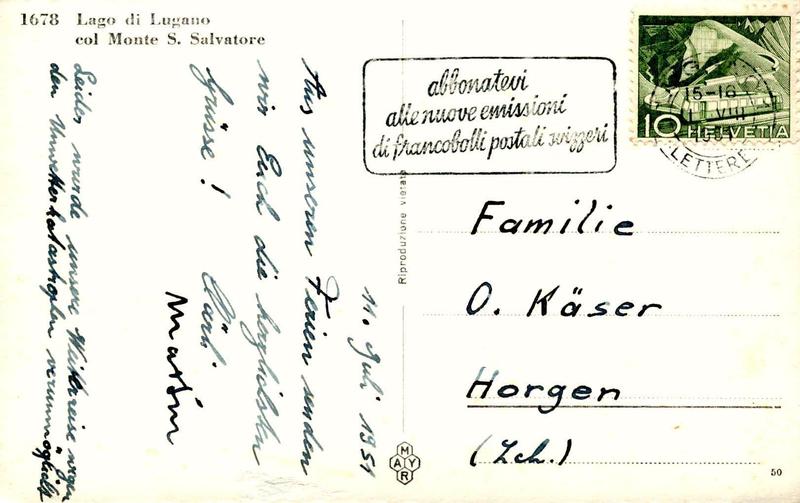 1678 Lago di Lugano
col Monte S. Salvatore
abbonatevi
alle nuove emissioni
di francobolli postali svizzeri
15-16
VIII
1951
LETTERE
10 HELVETIA
Riproduzione vietata
11. Juli 1951
Aus unseren Ferien senden
wir Euch die herzlichsten
Grüsse!
Martin
Leider wurde unsere Weiterreise wegen
den Unwetterkatastrophen verunmöglicht
Familie
O. Käser
Horgen
(Zch.)
MAYR
50